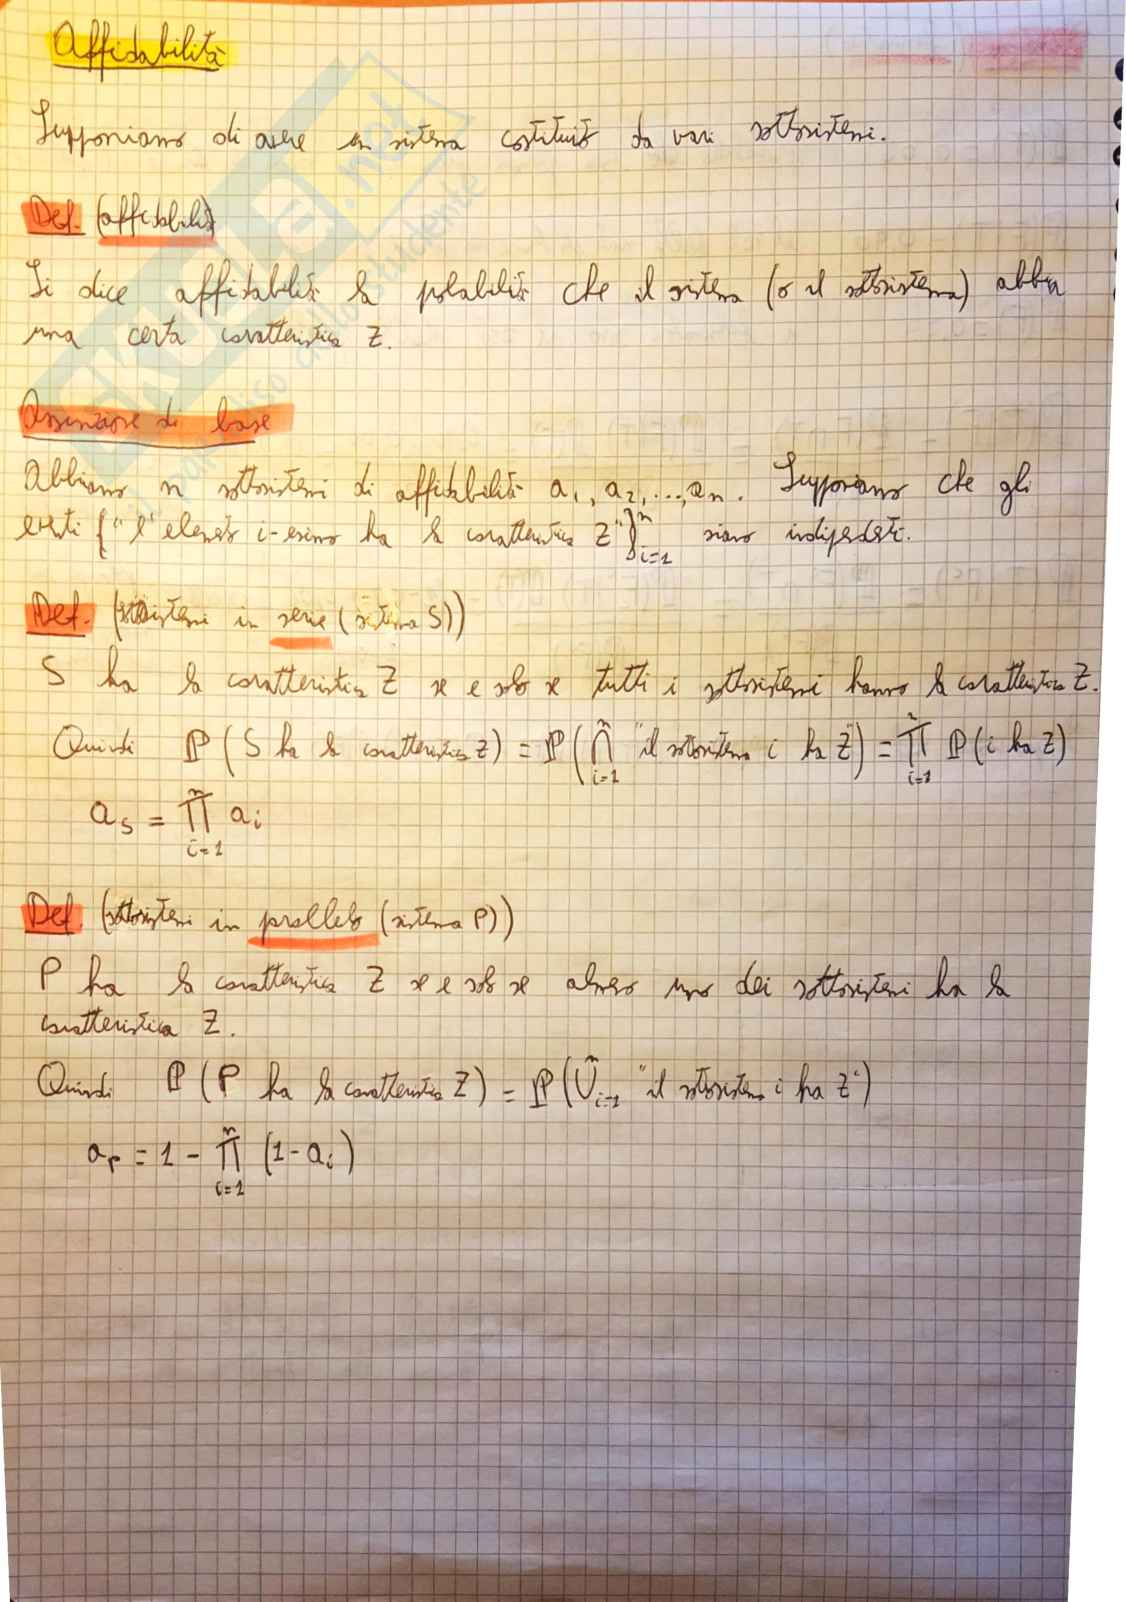 Affidabilità
Supponiamo di avere un sistema costituito da vari sottosistemi.
Def. (affidabilità)
Si dice affidabilità la probabilità che il sistema (o il sottosistema) abbia
una certa caratteristica Z.
Assunzione di base
Abbiamo n sottosistemi di affidabilità a₁, a₂, ..., aₙ. Supponiamo che gli
eventi {"l'elemento i-esimo ha la caratteristica Z"}ⁿᵢ₌₁ siano indipendenti.
Def. (sottosistemi in serie (sistema S))
S ha la caratteristica Z se e solo se tutti i sottosistemi hanno la caratteristica Z.
Quindi ℙ(S ha la caratteristica Z) = ℙ(⋂ⁿᵢ₌₁ "il sottosistema i ha Z") = ∏ⁿᵢ₌₁ ℙ(i ha Z)
a_S = ∏ⁿᵢ₌₁ aᵢ
Def. (sottosistemi in parallelo (sistema P))
P ha la caratteristica Z se e solo se almeno uno dei sottosistemi ha la
caratteristica Z.
Quindi ℙ(P ha la caratteristica Z) = ℙ(⋃ⁿᵢ₌₁ "il sottosistema i ha Z")
a_P = 1 - ∏ⁿᵢ₌₁ (1 - aᵢ)